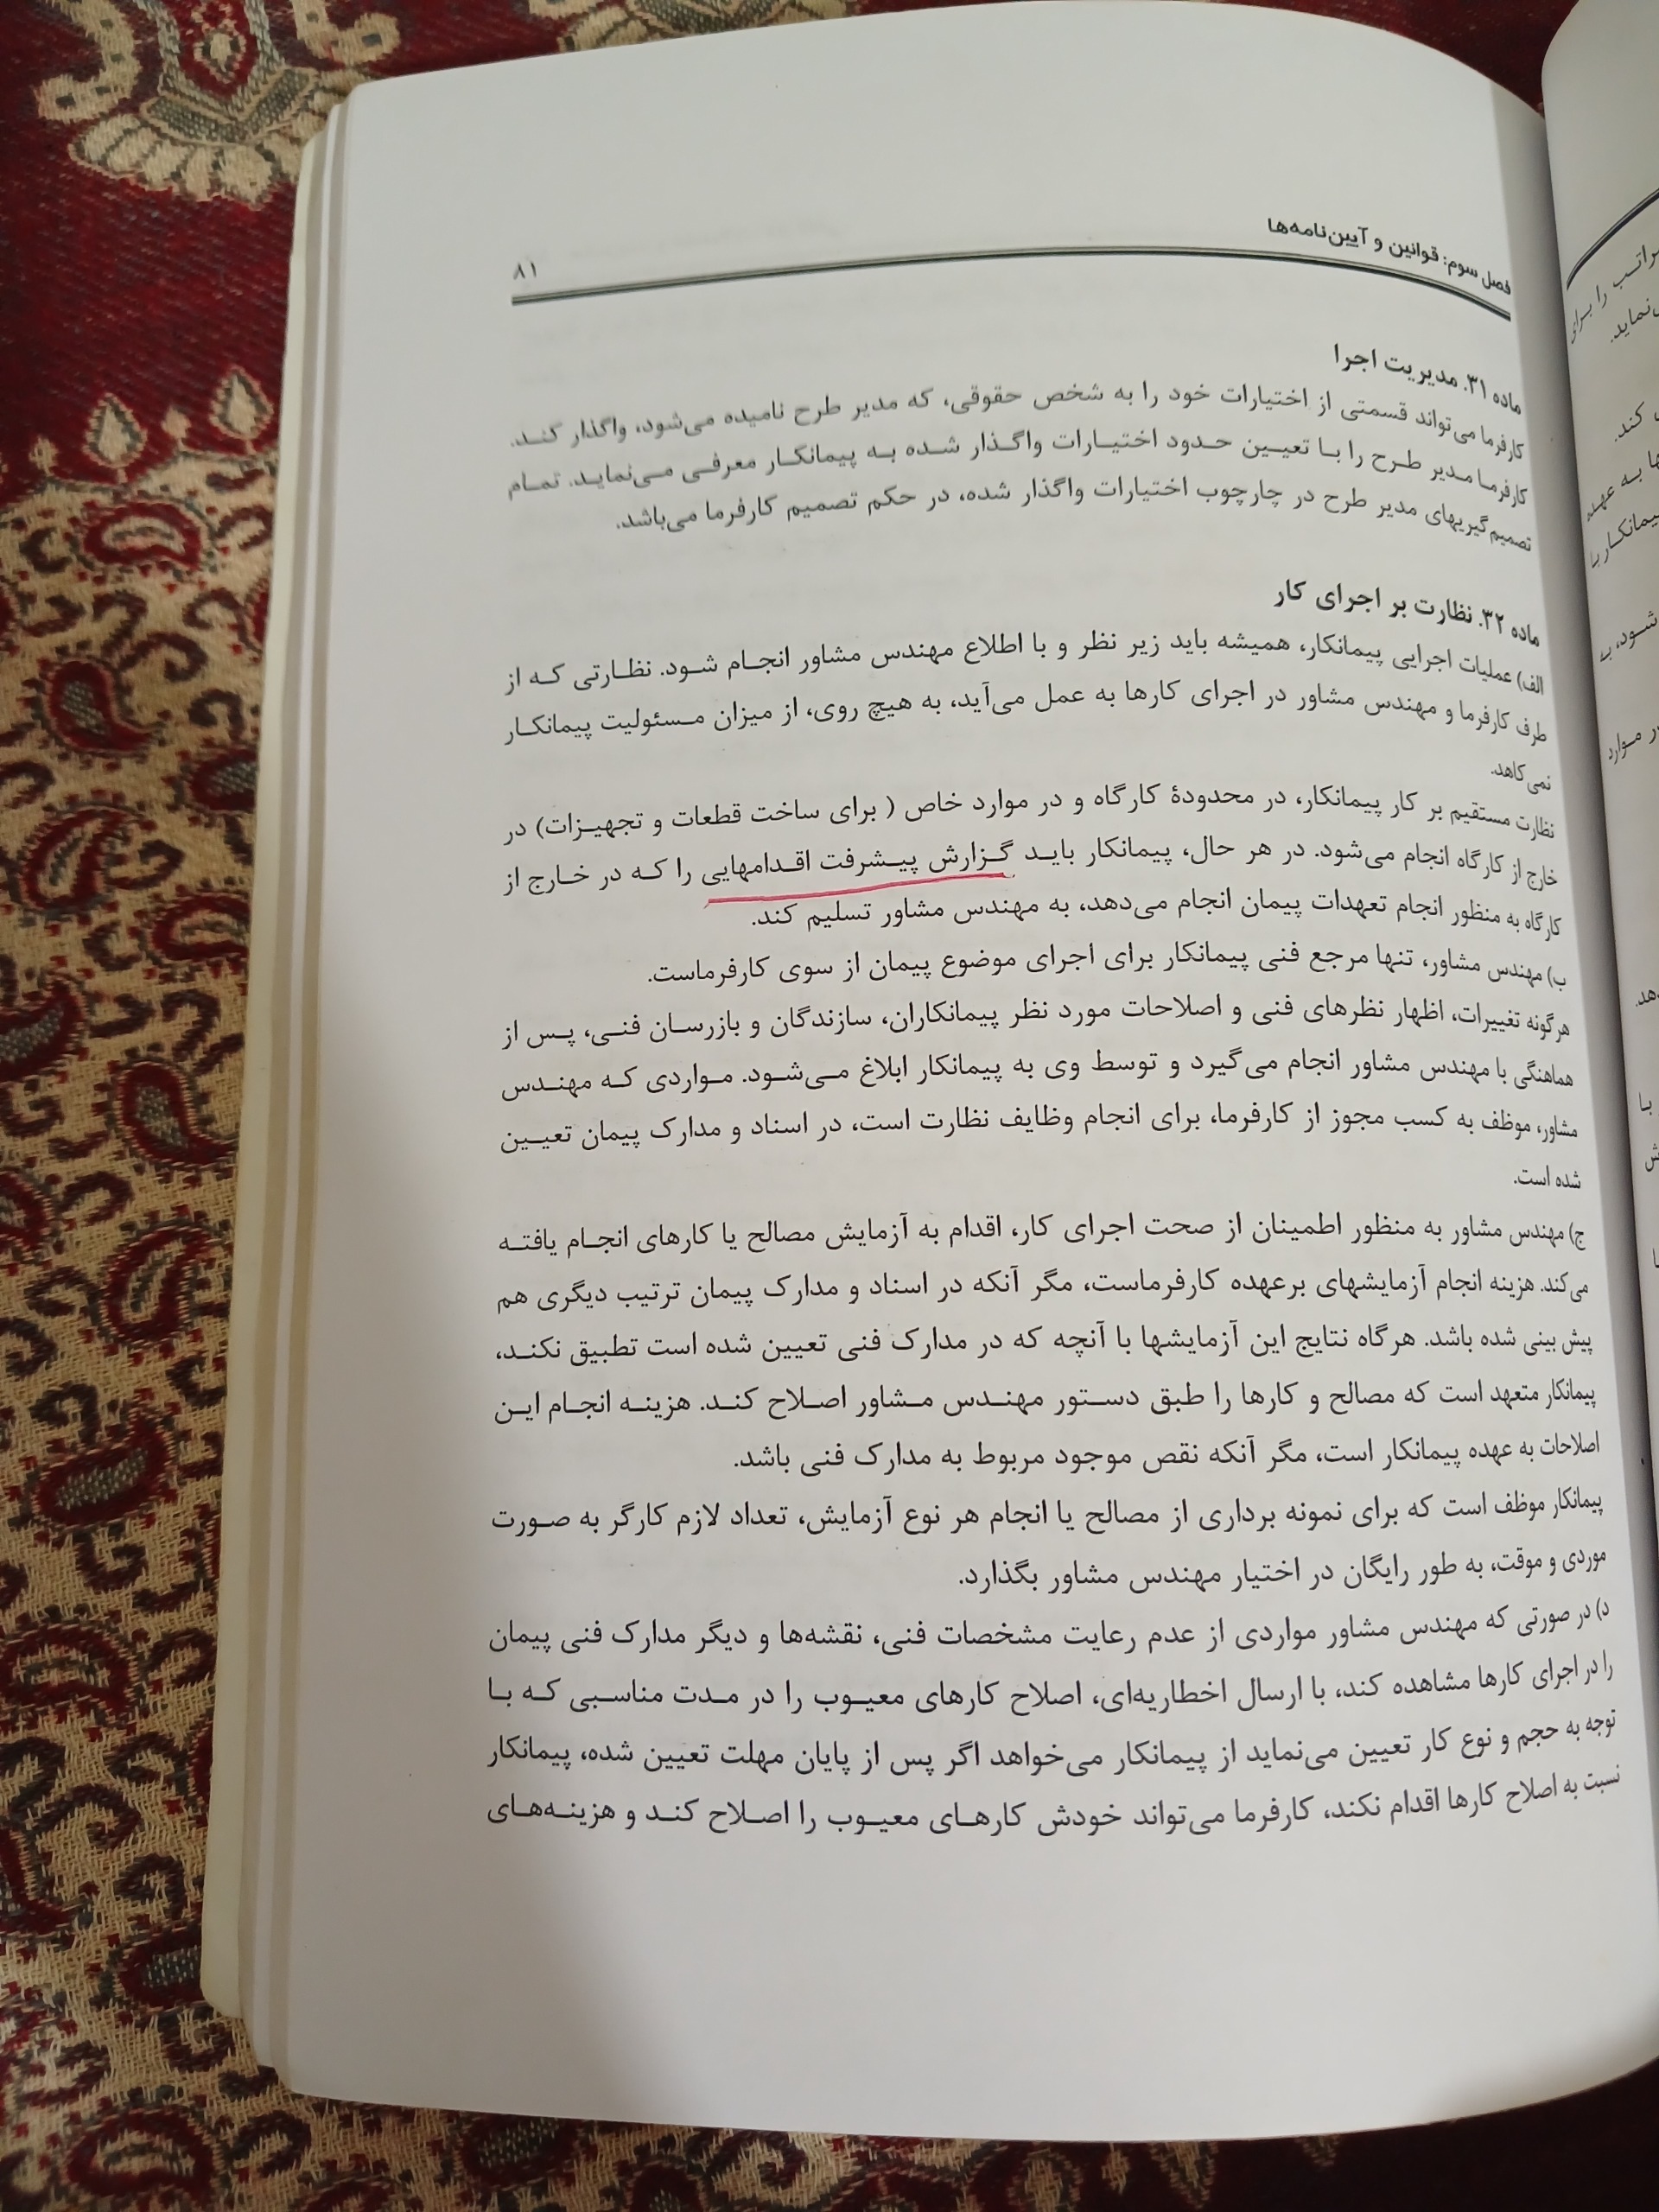 فصل سوم: قوانین و آیین‌نامه‌ها
۸۱
ماده ۳۱. مدیریت اجرا
کارفرما می‌تواند قسمتی از اختیارات خود را به شخص حقوقی، که مدیر طرح نامیده می‌شود، واگذار کند.
کارفرما مدیر طرح را با تعیین حدود اختیارات واگذار شده به پیمانکار معرفی می‌نماید. تمام
تصمیم‌گیریهای مدیر طرح در چارچوب اختیارات واگذار شده، در حکم تصمیم کارفرما می‌باشد.
ماده ۳۲. نظارت بر اجرای کار
الف) عملیات اجرایی پیمانکار، همیشه باید زیر نظر و با اطلاع مهندس مشاور انجام شود. نظارتی که از
طرف کارفرما و مهندس مشاور در اجرای کارها به عمل می‌آید، به هیچ روی، از میزان مسئولیت پیمانکار
نمی‌کاهد.
نظارت مستقیم بر کار پیمانکار، در محدودهٔ کارگاه و در موارد خاص ( برای ساخت قطعات و تجهیزات) در
خارج از کارگاه انجام می‌شود. در هر حال، پیمانکار باید گزارش پیشرفت اقدامهایی را که در خارج از
کارگاه به منظور انجام تعهدات پیمان انجام می‌دهد، به مهندس مشاور تسلیم کند.
ب) مهندس مشاور، تنها مرجع فنی پیمانکار برای اجرای موضوع پیمان از سوی کارفرماست.
هرگونه تغییرات، اظهار نظرهای فنی و اصلاحات مورد نظر پیمانکاران، سازندگان و بازرسان فنی، پس از
هماهنگی با مهندس مشاور انجام می‌گیرد و توسط وی به پیمانکار ابلاغ می‌شود. مواردی که مهندس
مشاور، موظف به کسب مجوز از کارفرما، برای انجام وظایف نظارت است، در اسناد و مدارک پیمان تعیین
شده است.
ج) مهندس مشاور به منظور اطمینان از صحت اجرای کار، اقدام به آزمایش مصالح یا کارهای انجام یافته
می‌کند. هزینه انجام آزمایشهای برعهده کارفرماست، مگر آنکه در اسناد و مدارک پیمان ترتیب دیگری هم
پیش بینی شده باشد. هرگاه نتایج این آزمایشها با آنچه که در مدارک فنی تعیین شده است تطبیق نکند،
پیمانکار متعهد است که مصالح و کارها را طبق دستور مهندس مشاور اصلاح کند. هزینه انجام این
اصلاحات به عهده پیمانکار است، مگر آنکه نقص موجود مربوط به مدارک فنی باشد.
پیمانکار موظف است که برای نمونه برداری از مصالح یا انجام هر نوع آزمایش، تعداد لازم کارگر به صورت
موردی و موقت، به طور رایگان در اختیار مهندس مشاور بگذارد.
د) در صورتی که مهندس مشاور مواردی از عدم رعایت مشخصات فنی، نقشه‌ها و دیگر مدارک فنی پیمان
را در اجرای کارها مشاهده کند، با ارسال اخطاریه‌ای، اصلاح کارهای معیوب را در مدت مناسبی که با
توجه به حجم و نوع کار تعیین می‌نماید از پیمانکار می‌خواهد اگر پس از پایان مهلت تعیین شده، پیمانکار
نسبت به اصلاح کارها اقدام نکند، کارفرما می‌تواند خودش کارهای معیوب را اصلاح کند و هزینه‌های